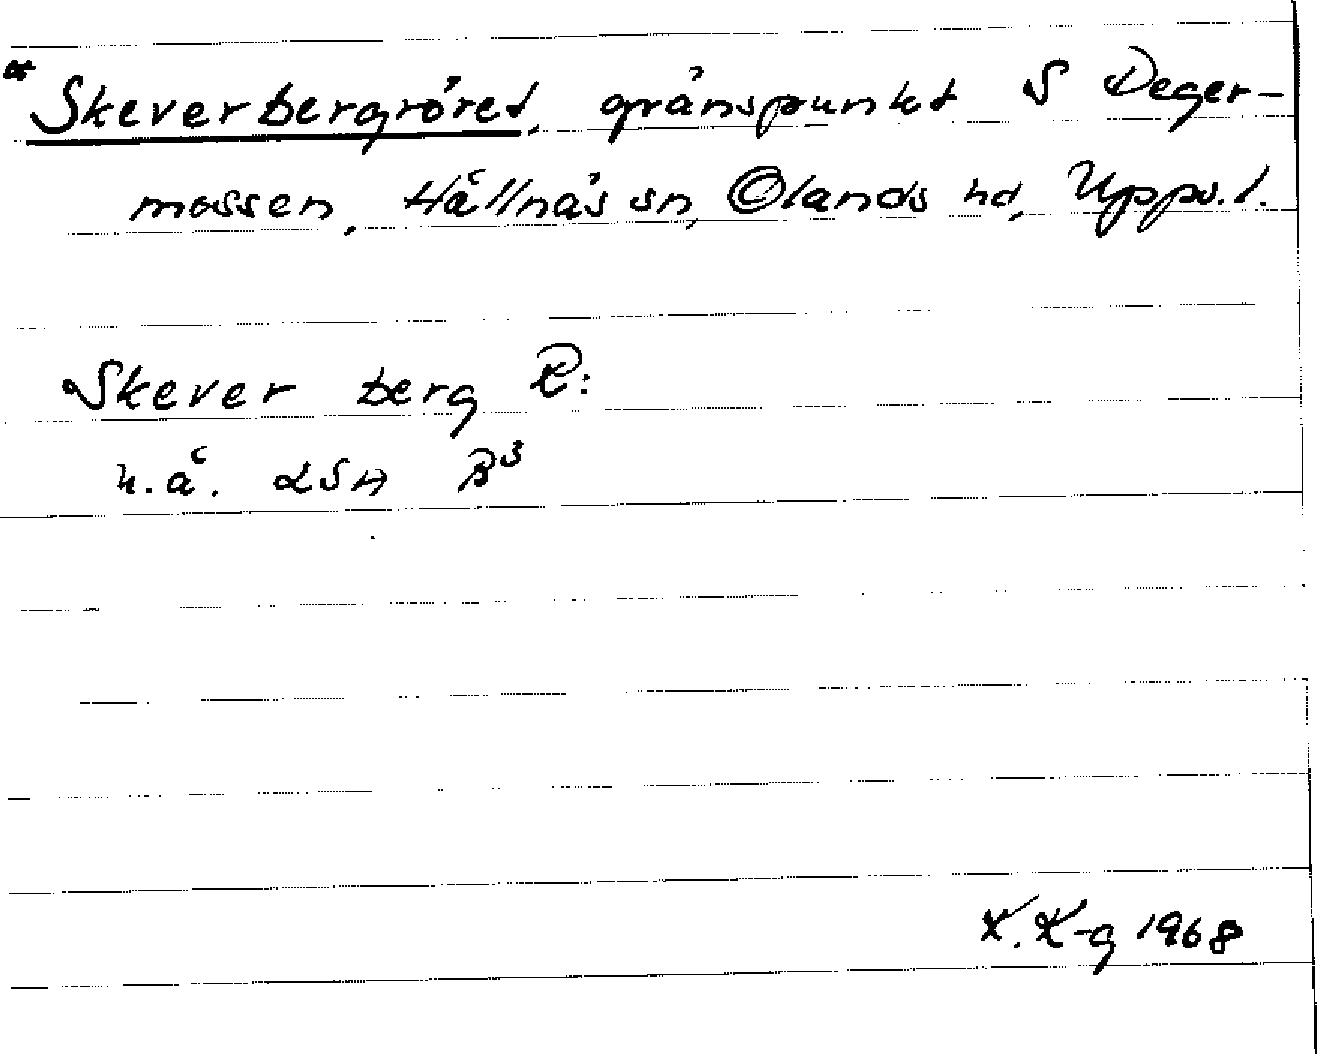 Skeverbergröret, gränspunkt S Deger-
mossen, Hållnäs sn, Olands hd, Upps. l.
Skever berg R:
h.å. LSA B3
K. K-g 1968